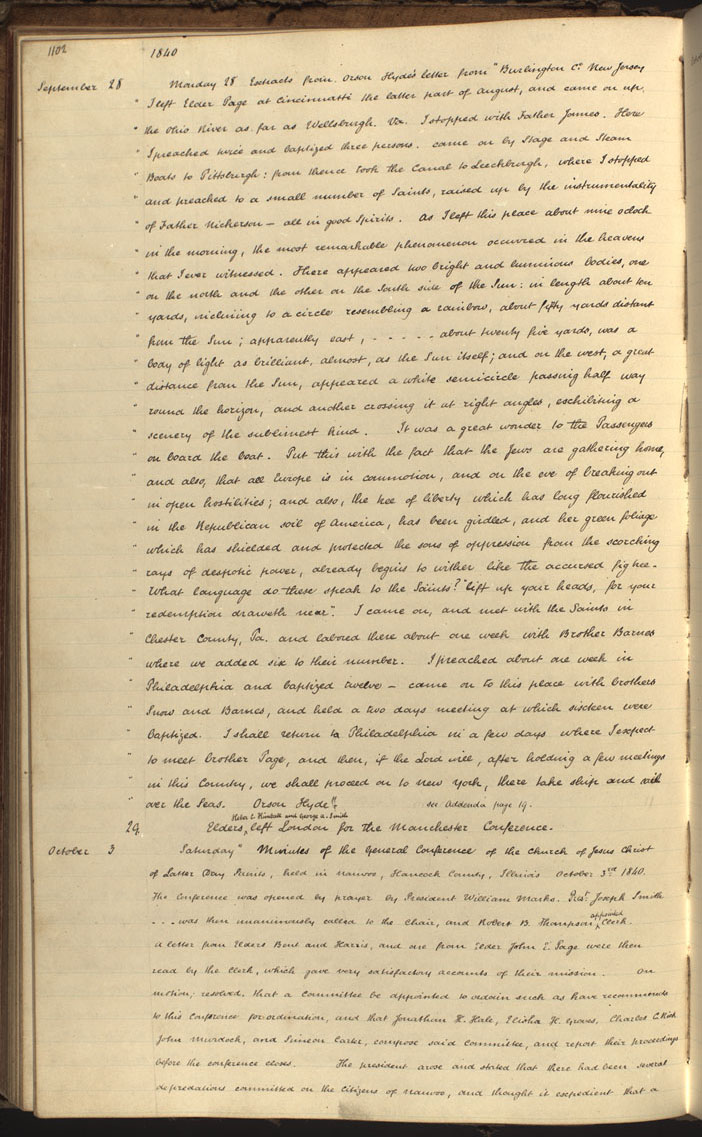 1102 1840
September 28 Monday 28 Extracts from Orson Hyde's letter from "Burlington Co. New Jersey
" I left Elder Page at Cincinnatti the latter part of August, and came on up
" the Ohio River as far as Wellsburgh. Va. I stopped with Father James. Here
" I preached twice and baptized three persons. came on by Stage and Steam
" Boats to Pittsburgh: from thence took the Canal to Leechburgh, where I stopped
" and preached to a small number of Saints, raised up by the instrumentality
" of Father Nickerson — all in good Spirits. As I left this place about nine oclock
" in the morning, the most remarkable phenomenon occurred in the heavens
" that I ever witnessed. There appeared two bright and luminous bodies, one
" on the north and the other on the South side of the Sun: in length about ten
" yards, inclining to a circle resembling a rainbow, about fifty yards distant
" from the Sun; apparently east, - - - - - about twenty five yards, was a
" body of light as brilliant, almost, as the Sun itself; and on the west, a great
" distance from the Sun, appeared a white semicircle passing half way
" round the horizon, and another crossing it at right angles, exhibiting a
" scenery of the sublimest kind. It was a great wonder to the Passengers
" on board the boat. Put this with the fact that the Jews are gathering home,
" and also, that all Europe is in commotion, and on the eve of breaking out
" in open hostilities; and also, the tree of liberty which has long flourished
" in the Republican soil of America, has been girdled, and her green foliage
" which has shielded and protected the sons of oppression from the scorching
" rays of despotic power, already begins to wither like the accursed fig tree.
" What language do these speak to the Saints? "lift up your heads, for your
" redemption draweth near". I came on, and met with the Saints in
" Chester County, Pa. and labored there about one week with Brother Barnes
" where we added six to their number. I preached about one week in
" Philadelphia and baptized twelve — came on to this place with brothers
" Snow and Barnes, and held a two days meeting at which sixteen were
" Baptized. I shall return to Philadelphia in a few days where I expect
" to meet brother Page, and then, if the Lord will, after holding a few meetings
" in this Country, we shall proceed on to new York, there take ship and sail
" over the Seas. Orson Hyde". see Addenda page 19.
Heber C. Kimball and George A. Smith
29 Elders, left London for the Manchester Conference.
October 3 Saturday" Minutes of the General Conference of the Church of Jesus Christ
of Latter Day Saints, held in nauvoo, Hancock County, Illinois October 3rd 1840.
The Conference was opened by prayer by President William Marks. Prest. Joseph Smith
appointed
- - - was then unanimously called to the Chair, and Robert B. Thompson, Clerk.
a letter from Elders Bent and Harris, and one from Elder John E. Page were then
read by the Clerk, which gave very satisfactory accounts of their mission. On
motion; resolved. that a Committee be appointed to ordain such as have recommends
to this Conference for ordination, and that Jonathan H. Hale, Elisha H. Groves, Charles C. Rich
John Murdock, and Simeon Carter, compose said Committee, and report their proceedings
before the conference closes. The president arose and stated that there had been several
depredations committed on the Citizens of nauvoo, and thought it expedient that a